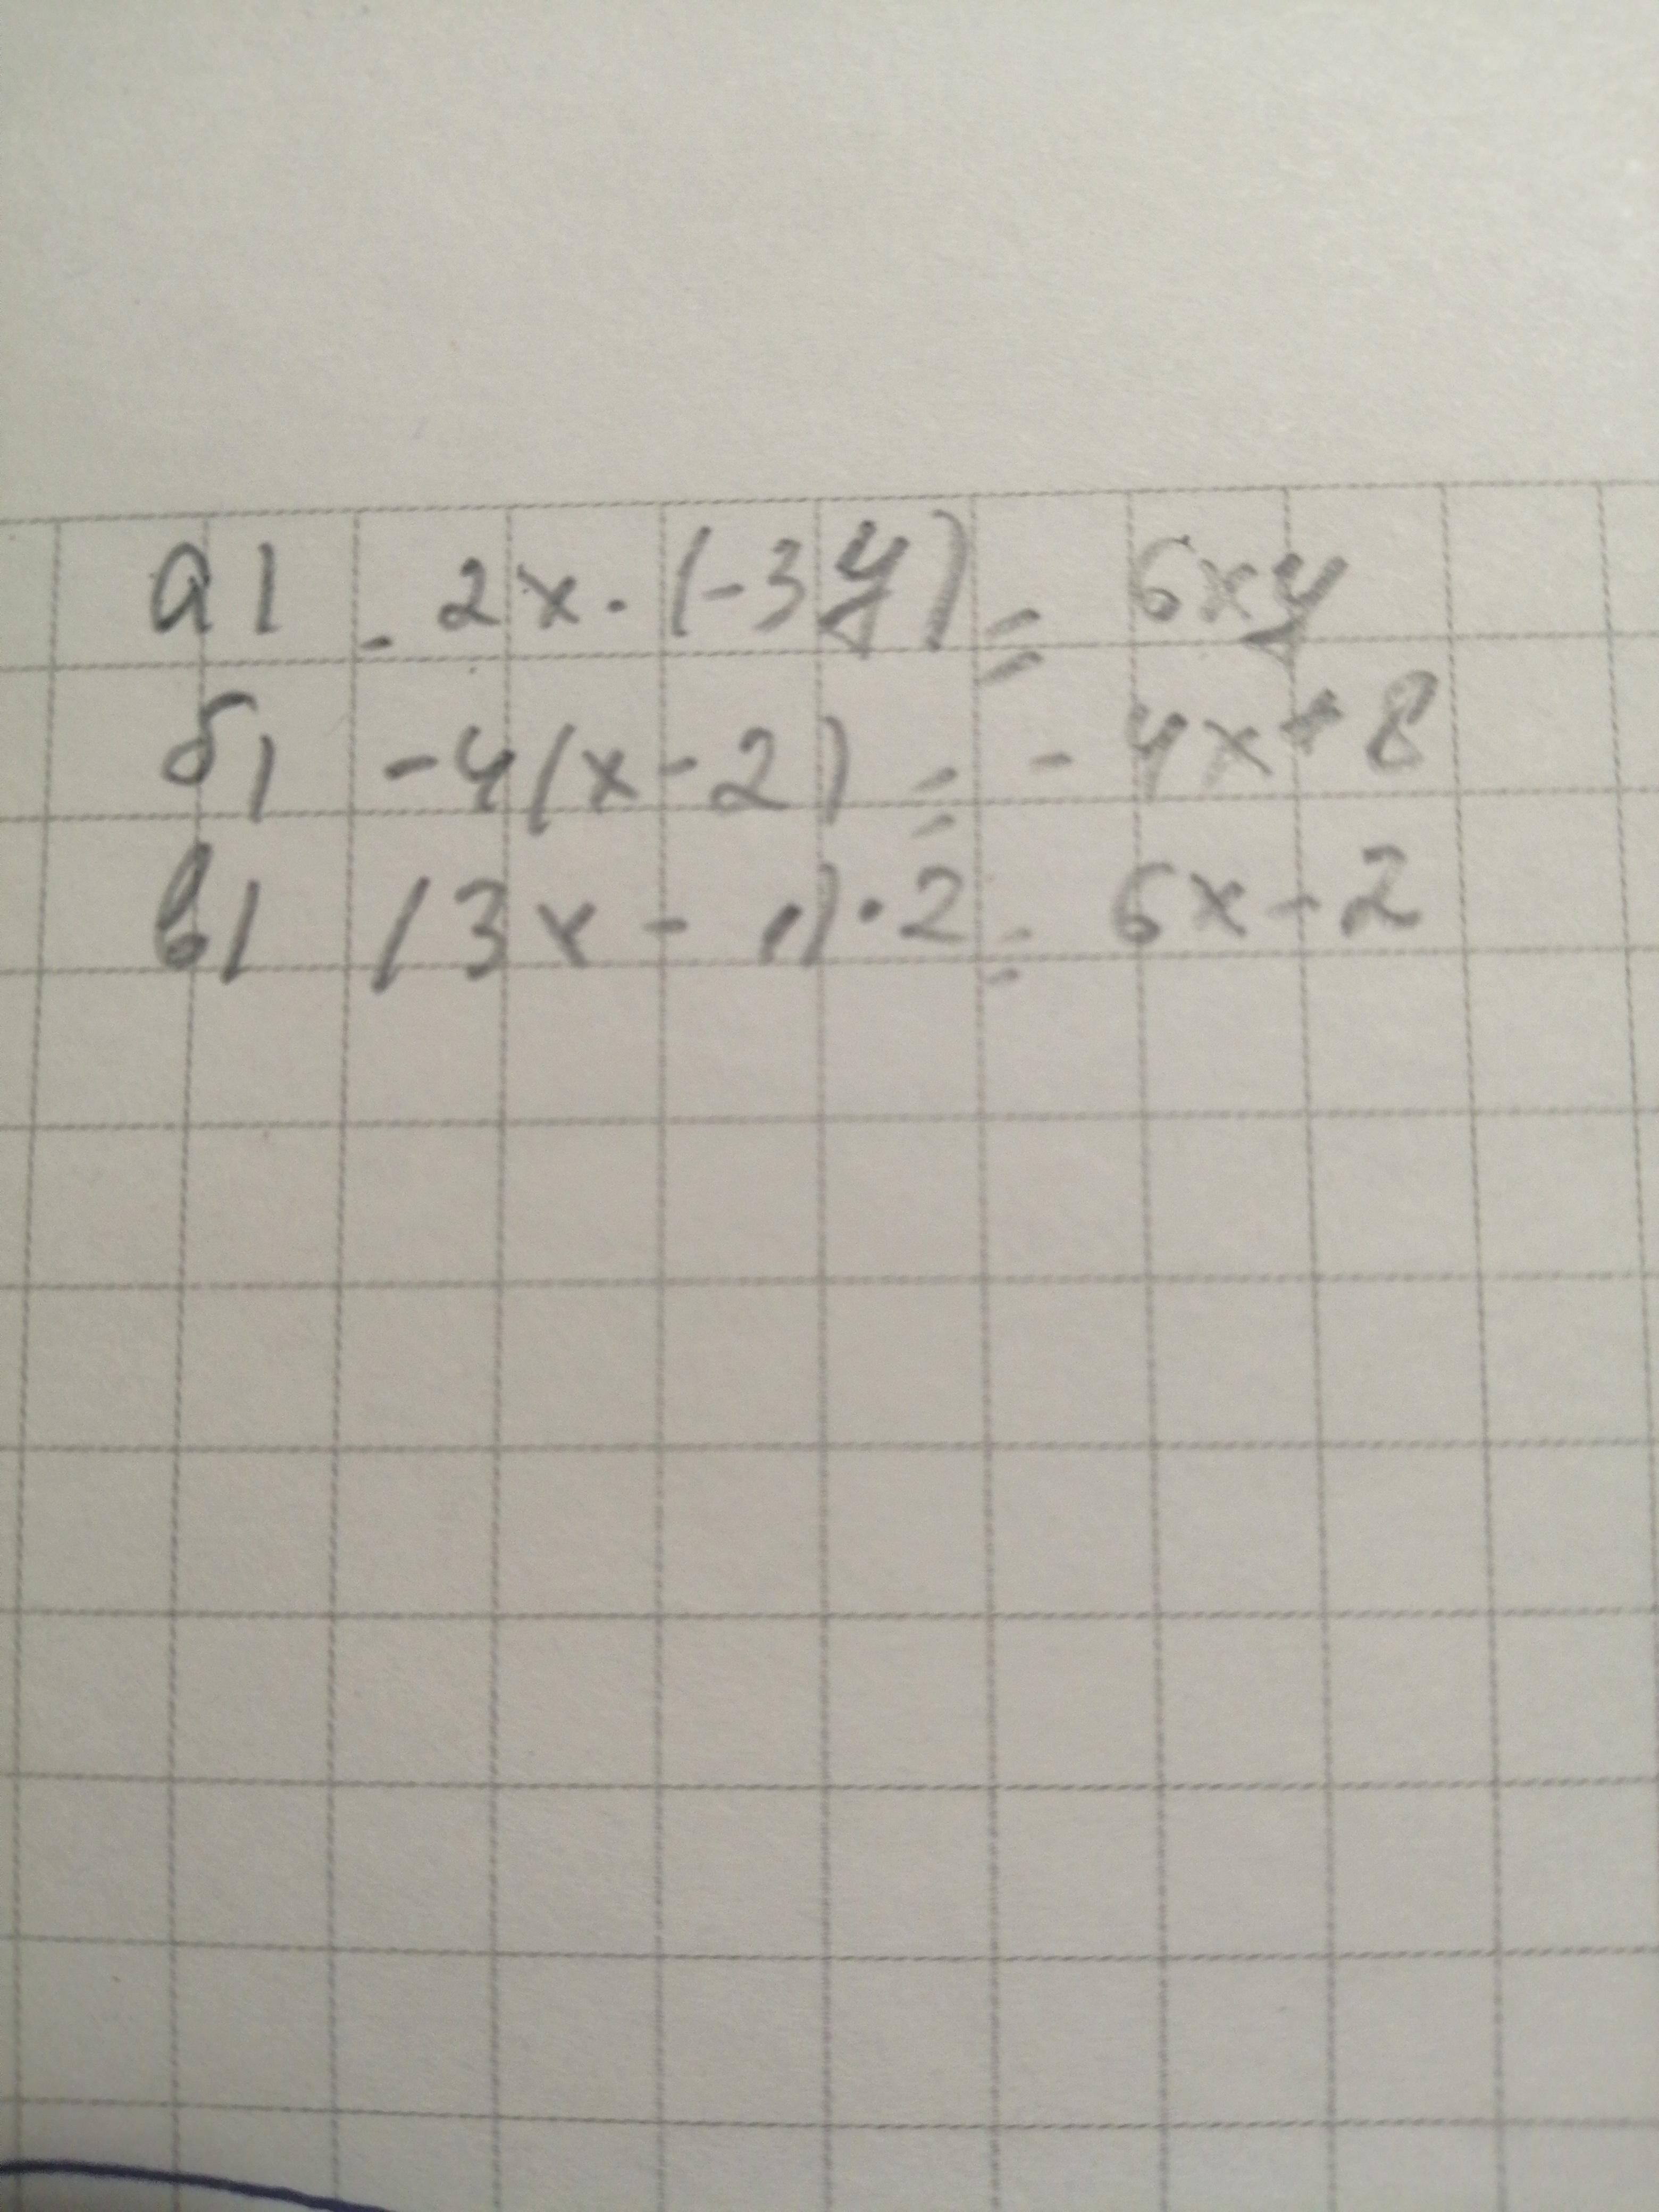 а) - 2x · (-3y) = 6xy
б) -4(x-2) = -4x+8
в) (3x - 1)·2 = 6x-2